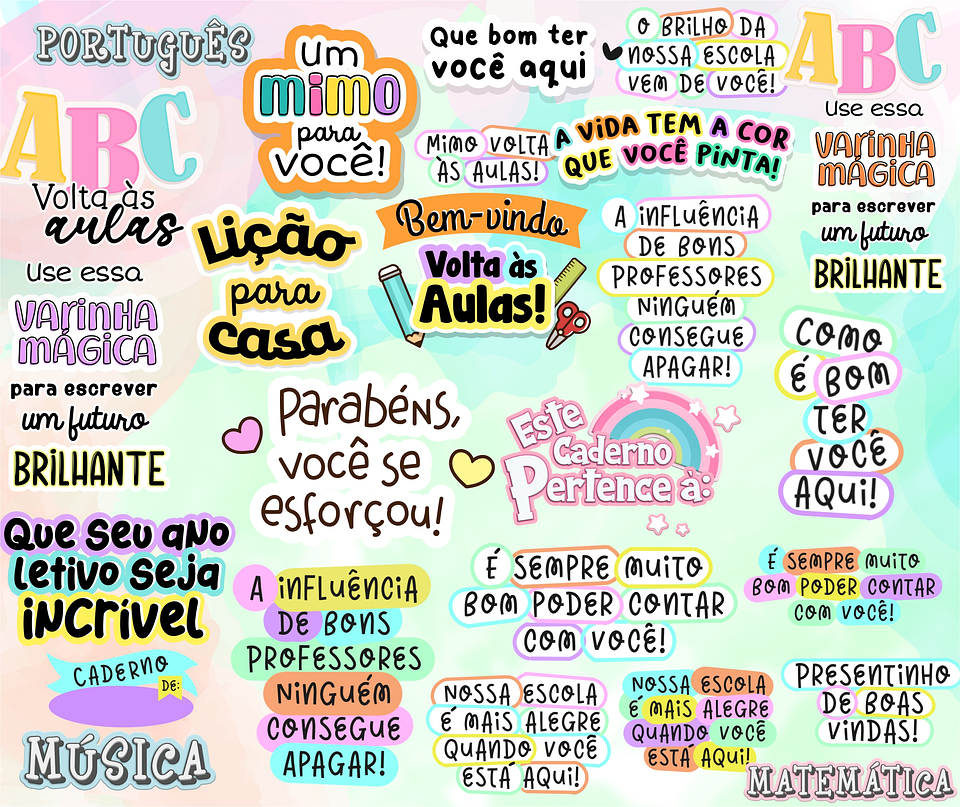 PORTUGUÊS
ABC
Volta às
aulas
Use essa
VARINHA
MÁGICA
para escrever
um futuro
BRILHANTE
Que seu ano
letivo seja
incrível
CADERNO
DE:
MÚSICA
Um
mimo
para
você!
Lição
para
casa
Parabéns,
você se
esforçou!
A INFLUÊNCIA
DE BONS
PROFESSORES
NINGUÉM
CONSEGUE
APAGAR!
Que bom ter
você aqui
Mimo VOLTA
ÀS AULAS!
Bem-vindo
Volta às
Aulas!
O BRILHO DA
NOSSA ESCOLA
VEM DE VOCÊ!
A VIDA TEM A COR
QUE VOCÊ PINTA!
A INFLUÊNCIA
DE BONS
PROFESSORES
NINGUÉM
CONSEGUE
APAGAR!
Este
Caderno
Pertence à:
É SEMPRE MUITO
BOM PODER CONTAR
COM VOCÊ!
NOSSA ESCOLA
É MAIS ALEGRE
QUANDO VOCÊ
ESTÁ AQUI!
NOSSA ESCOLA
É MAIS ALEGRE
QUANDO VOCÊ
ESTÁ AQUI!
ABC
Use essa
VARINHA
MÁGICA
para escrever
um futuro
BRILHANTE
COMO
É BOM
TER
VOCÊ
AQUI!
É SEMPRE MUITO
BOM PODER CONTAR
COM VOCÊ!
PRESENTINHO
DE BOAS
VINDAS!
MATEMÁTICA